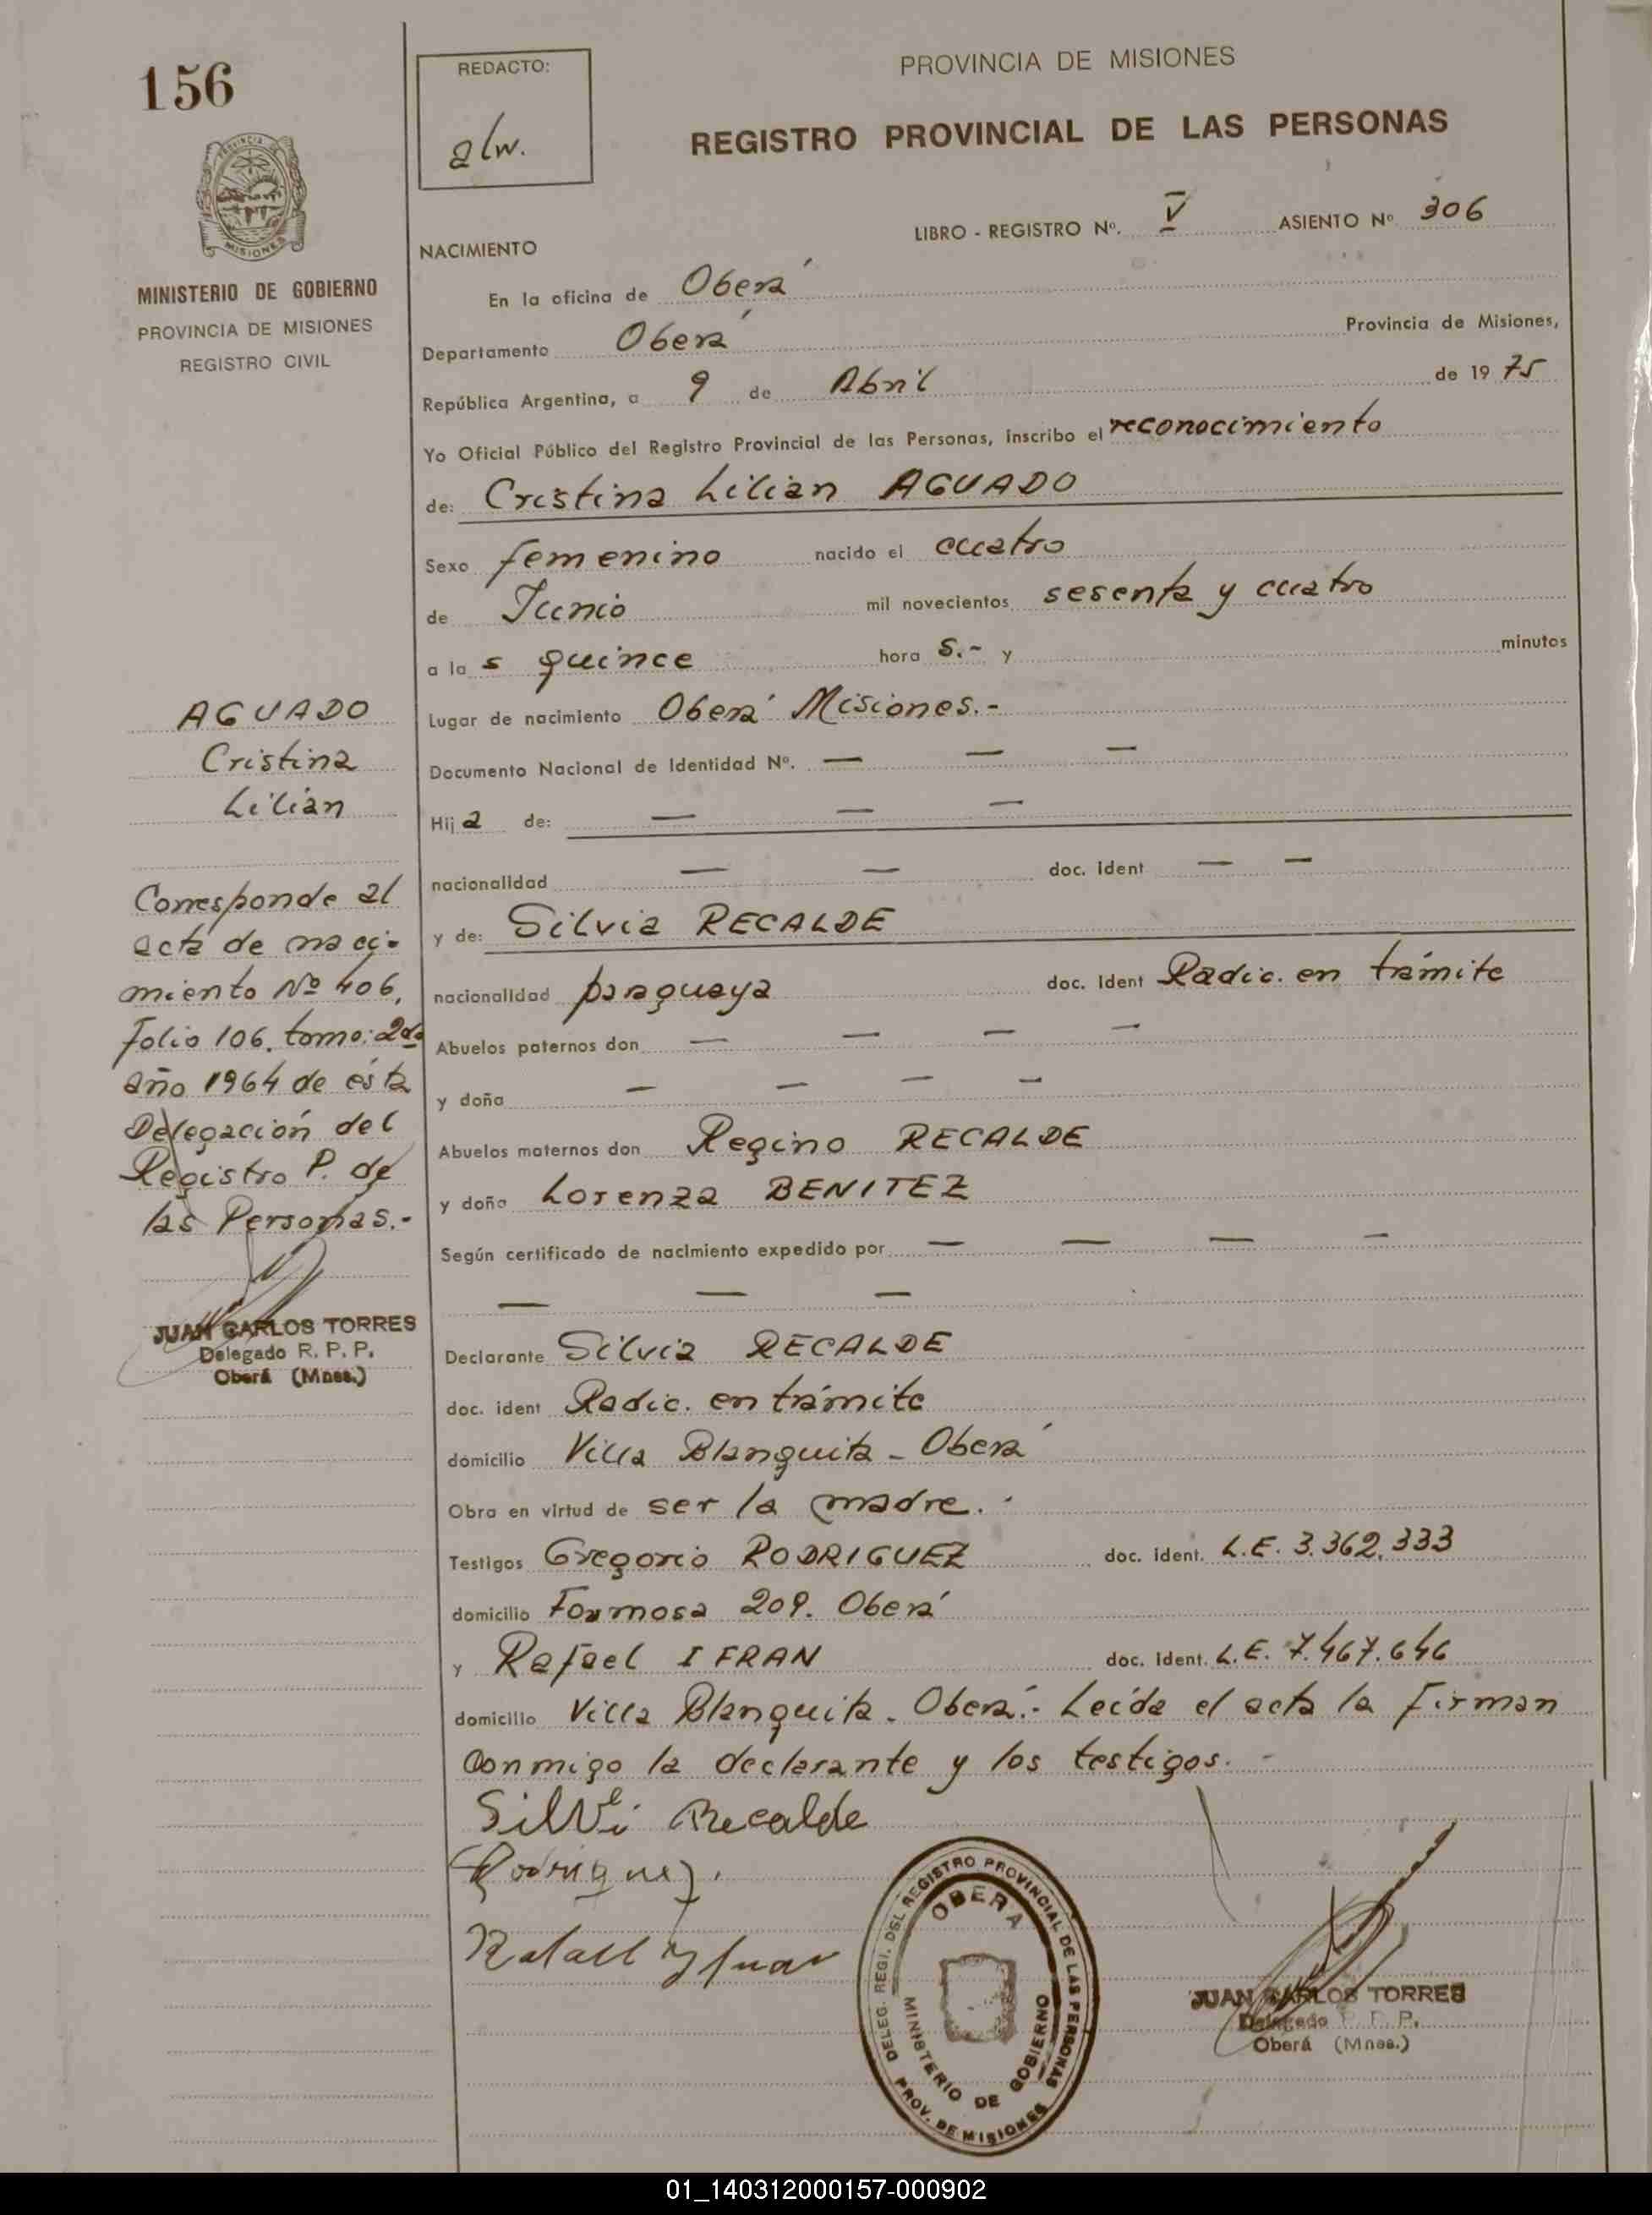 156
REDACTO:
alw.
PROVINCIA DE MISIONES
REGISTRO PROVINCIAL DE LAS PERSONAS
PROVINCIA
MISIONES
LIBRO - REGISTRO Nº. V ASIENTO Nº 306
MINISTERIO DE GOBIERNO
PROVINCIA DE MISIONES
REGISTRO CIVIL
NACIMIENTO
En la oficina de Oberá
Departamento Oberá Provincia de Misiones,
República Argentina, a 9 de Abril de 19 75
Yo Oficial Público del Registro Provincial de las Personas, inscribo el reconocimiento
de: Cristina Lilian AGUADO
Sexo femenino nacido el cuatro
de Junio mil novecientos sesenta y cuatro
a la s quince hora s.- y minutos
Lugar de nacimiento Oberá Misiones.-
Documento Nacional de Identidad Nº. — — —
Hij a de: — — —
nacionalidad — — doc. ident — —
y de: Silvia RECALDE
nacionalidad paraguaya doc. ident Radic. en trámite
Abuelos paternos don — — — —
y doña — — — —
Abuelos maternos don Regino RECALDE
y doña Lorenza BENITEZ
Según certificado de nacimiento expedido por — — — —
— — —
Declarante Silvia RECALDE
doc. ident Radic. en trámite
domicilio Villa Blanquita - Oberá
Obra en virtud de ser la madre.-
Testigos Gregorio RODRIGUEZ doc. ident. L.E. 3.362.333
domicilio Formosa 209. Oberá
y Rafael IFRAN doc. ident. L.E. 7.467.646
domicilio Villa Blanquita. Oberá.- Leída el acta la firman
conmigo la declarante y los testigos. -
AGUADO
Cristina
Lilian
Corresponde al
acta de naci-
miento Nº 406,
Folio 106. tomo: 2do
año 1964 de ésta
Delegación del
Registro P. de
las Personas.-
JUAN CARLOS TORRES
Delegado R. P. P.
Oberá (Mnes.)
Silvi Recalde
Rodriguez.
DELEG. REGI. DEL REGISTRO PROVINCIAL DE LAS PERSONAS
OBERA
MINISTERIO DE GOBIERNO
PROV. DE MISIONES
JUAN CARLOS TORRES
Delegado R. P. P.
Oberá (Mnes.)
01_140312000157-000902